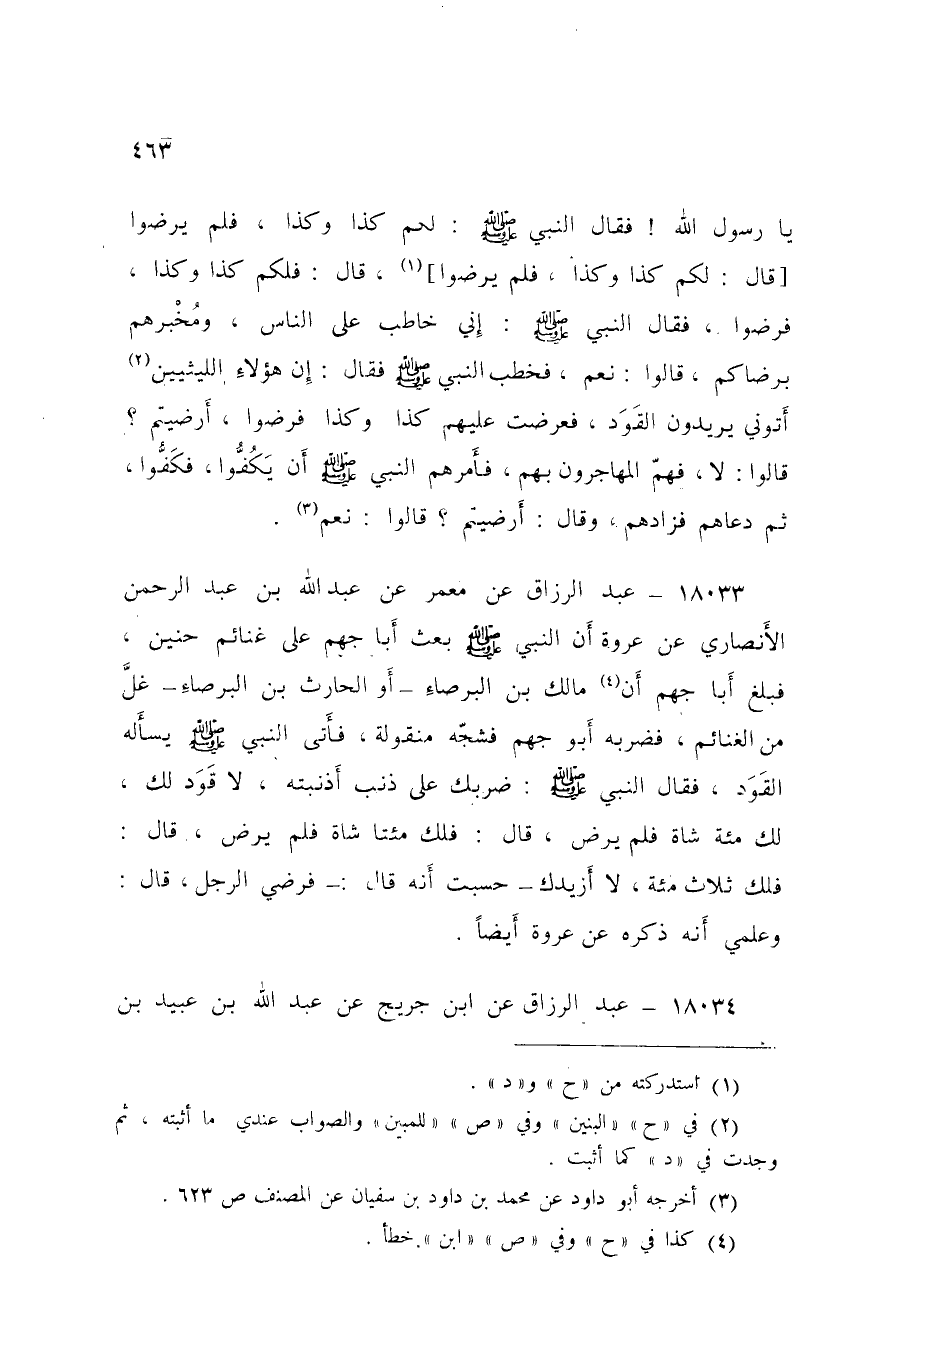 ٤٦٣
يا رسول الله ! فقال النبي ﷺ : لحم كذا وكذا ، فلم يرضوا
[قال : لكم كذا وكذا ، فلم يرضوا](١) ، قال : فلكم كذا وكذا ،
فرضوا ، فقال النبي ﷺ : إني خاطب على الناس ، ومُخْبرهم
برضاكم ، قالوا : نعم ، فخطب النبي ﷺ فقال : إن هؤلاء الليثيين(٢)
أتوني يريدون القَوَد ، فعرضت عليهم كذا وكذا فرضوا ، أرضيتم ؟
قالوا : لا ، فهمّ المهاجرون بهم ، فأمرهم النبي ﷺ أن يَكُفُّوا ، فكَفُّوا ،
ثم دعاهم فزادهم ، وقال : أرضيتم ؟ قالوا : نعم(٣) .
١٨٠٣٣ – عبد الرزاق عن معمر عن عبد الله بن عبد الرحمن
الأنصاري عن عروة أن النبي ﷺ بعث أبا جهم على غنائم حنين ،
فبلغ أبا جهم أن(٤) مالك بن البرصاء – أو الحارث بن البرصاء – غلَّ
من الغنائم ، فضربه أبو جهم فشجّه منقولة ، فأتى النبي ﷺ يسأله
القَوَد ، فقال النبي ﷺ : ضربك على ذنب أذنبته ، لا قَوَد لك ،
لك مئة شاة فلم يرض ، قال : فلك مئتا شاة فلم يرض ، قال :
فلك ثلاث مئة ، لا أزيدك – حسبت أنه قال :– فرضي الرجل ، قال :
وعلمي أنه ذكره عن عروة أيضاً .
١٨٠٣٤ – عبد الرزاق عن ابن جريج عن عبد الله بن عبيد بن
(١) استدركته من «ح» و«د» .
(٢) في «ح» «البنين» وفي «ص» «للمبين» والصواب عندي ما أثبته ، ثم
وجدت في «د» كما أثبت .
(٣) أخرجه أبو داود عن محمد بن داود بن سفيان عن المصنف ص ٦٢٣ .
(٤) كذا في «ح» وفي «ص» «ابن» خطأ .